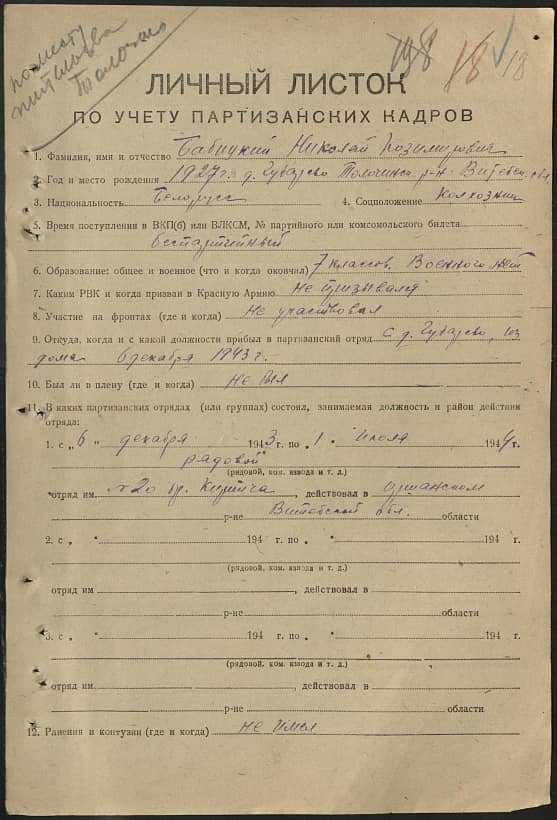 по месту
жительства
Толочино
198 18 18
ЛИЧНЫЙ ЛИСТОК
ПО УЧЕТУ ПАРТИЗАНСКИХ КАДРОВ
1. Фамилия, имя и отчество Бабицкий Николай Козимирович
2. Год и место рождения 1927 г. д. Губарево Толочинск р-н Витебск. обл
3. Национальность Белорусс 4. Соцположение Колхозник
5. Время поступления в ВКП(б) или ВЛКСМ, № партийного или комсомольского билета
беспартийный
6. Образование: общее и военное (что и когда окончил) 7 классов. Военного нет
7. Каким РВК и когда призван в Красную Армию не призывался
8. Участие на фронтах (где и когда) Не участвовал
9. Откуда, когда и с какой должности прибыл в партизанский отряд с д. Губарево, из
дома 6 декабря 1943 г.
10. Был ли в плену (где и когда) не был
11. В каких партизанских отрядах (или группах) состоял, занимаемая должность и район действия
отряда:
1. с „6 " декабря 1943 г. по „1 " июля 1944 г.
рядовой
(рядовой, ком. взвода и т. д.)
отряд им. №20 бр. Кирпича, действовал в оршанском
р-не Витебской обл. области
2. с „ " 194 г. по „ " 194 г.
(рядовой, ком. взвода и т. д.)
отряд им , действовал в
р-не области
3. с „ " 194 г. по „ " 194 г.
(рядовой, ком. взвода и т. д.)
отряд им , действовал в
р-не области
12. Ранения и контузии (где и когда) не имел